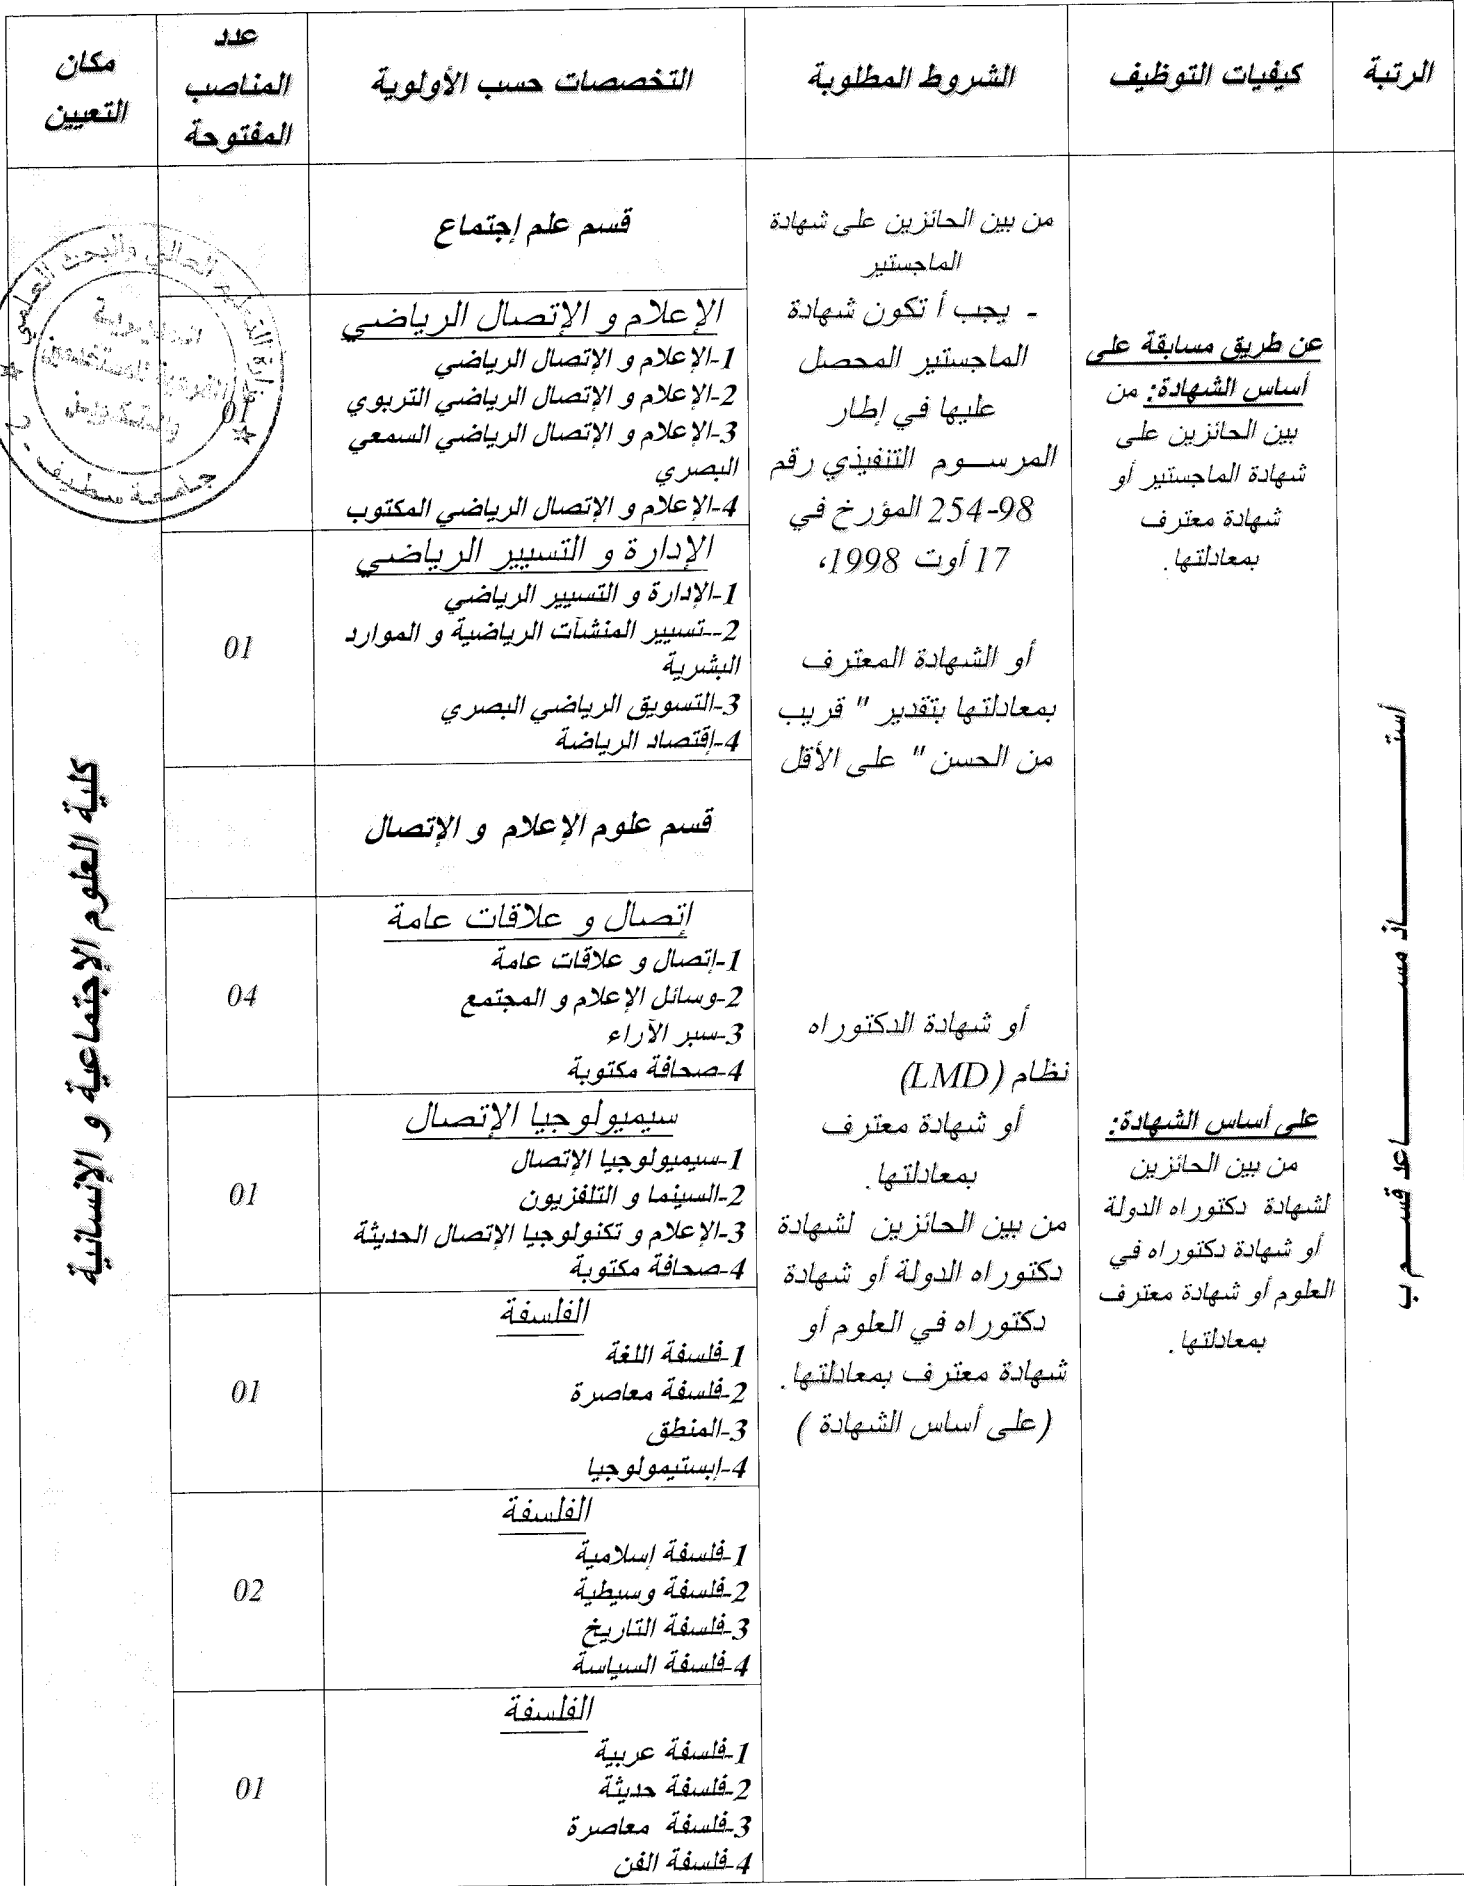 الرتبة
كيفيات التوظيف
الشروط المطلوبة
التخصصات حسب الأولوية
عدد
المناصب
المفتوحة
مكان
التعيين
أستــــاذ مســــاعد قســم ب
عن طريق مسابقة على
أساس الشهادة: من
بين الحائزين على
شهادة الماجستير أو
شهادة معترف
بمعادلتها.
على أساس الشهادة:
من بين الحائزين
لشهادة دكتوراه الدولة
أو شهادة دكتوراه في
العلوم أو شهادة معترف
بمعادلتها.
من بين الحائزين على شهادة
الماجستير
- يجب أ تكون شهادة
الماجستير المحصل
عليها في إطار
المرســوم التنفيذي رقم
98-254 المؤرخ في
17 أوت 1998،
أو الشهادة المعترف
بمعادلتها بتقدير " قريب
من الحسن " على الأقل
أو شهادة الدكتوراه
نظام (LMD)
أو شهادة معترف
بمعادلتها.
من بين الحائزين لشهادة
دكتوراه الدولة أو شهادة
دكتوراه في العلوم أو
شهادة معترف بمعادلتها.
(على أساس الشهادة )
قسم علم إجتماع
الإعلام و الإتصال الرياضي
1-الإعلام و الإتصال الرياضي
2-الإعلام و الإتصال الرياضي التربوي
3-الإعلام و الإتصال الرياضي السمعي
البصري
4-الإعلام و الإتصال الرياضي المكتوب
01
الإدارة و التسيير الرياضي
1-الإدارة و التسيير الرياضي
2--تسيير المنشآت الرياضية و الموارد
البشرية
3-التسويق الرياضي البصري
4-إقتصاد الرياضة
01
قسم علوم الإعلام و الإتصال
إتصال و علاقات عامة
1-إتصال و علاقات عامة
2-وسائل الإعلام و المجتمع
3-سبر الآراء
4-صحافة مكتوبة
04
سيميولوجيا الإتصال
1-سيميولوجيا الإتصال
2-السينما و التلفزيون
3-الإعلام و تكنولوجيا الإتصال الحديثة
4-صحافة مكتوبة
01
الفلسفة
1-فلسفة اللغة
2-فلسفة معاصرة
3-المنطق
4-إبستيمولوجيا
01
الفلسفة
1-فلسفة إسلامية
2-فلسفة وسيطية
3-فلسفة التاريخ
4-فلسفة السياسة
02
الفلسفة
1-فلسفة عربية
2-فلسفة حديثة
3-فلسفة معاصرة
4-فلسفة الفن
01
كلية العلوم الإجتماعية و الإنسانية
وزارة التعليم العالي والبحث العلمي
جامعة سطيف - 2